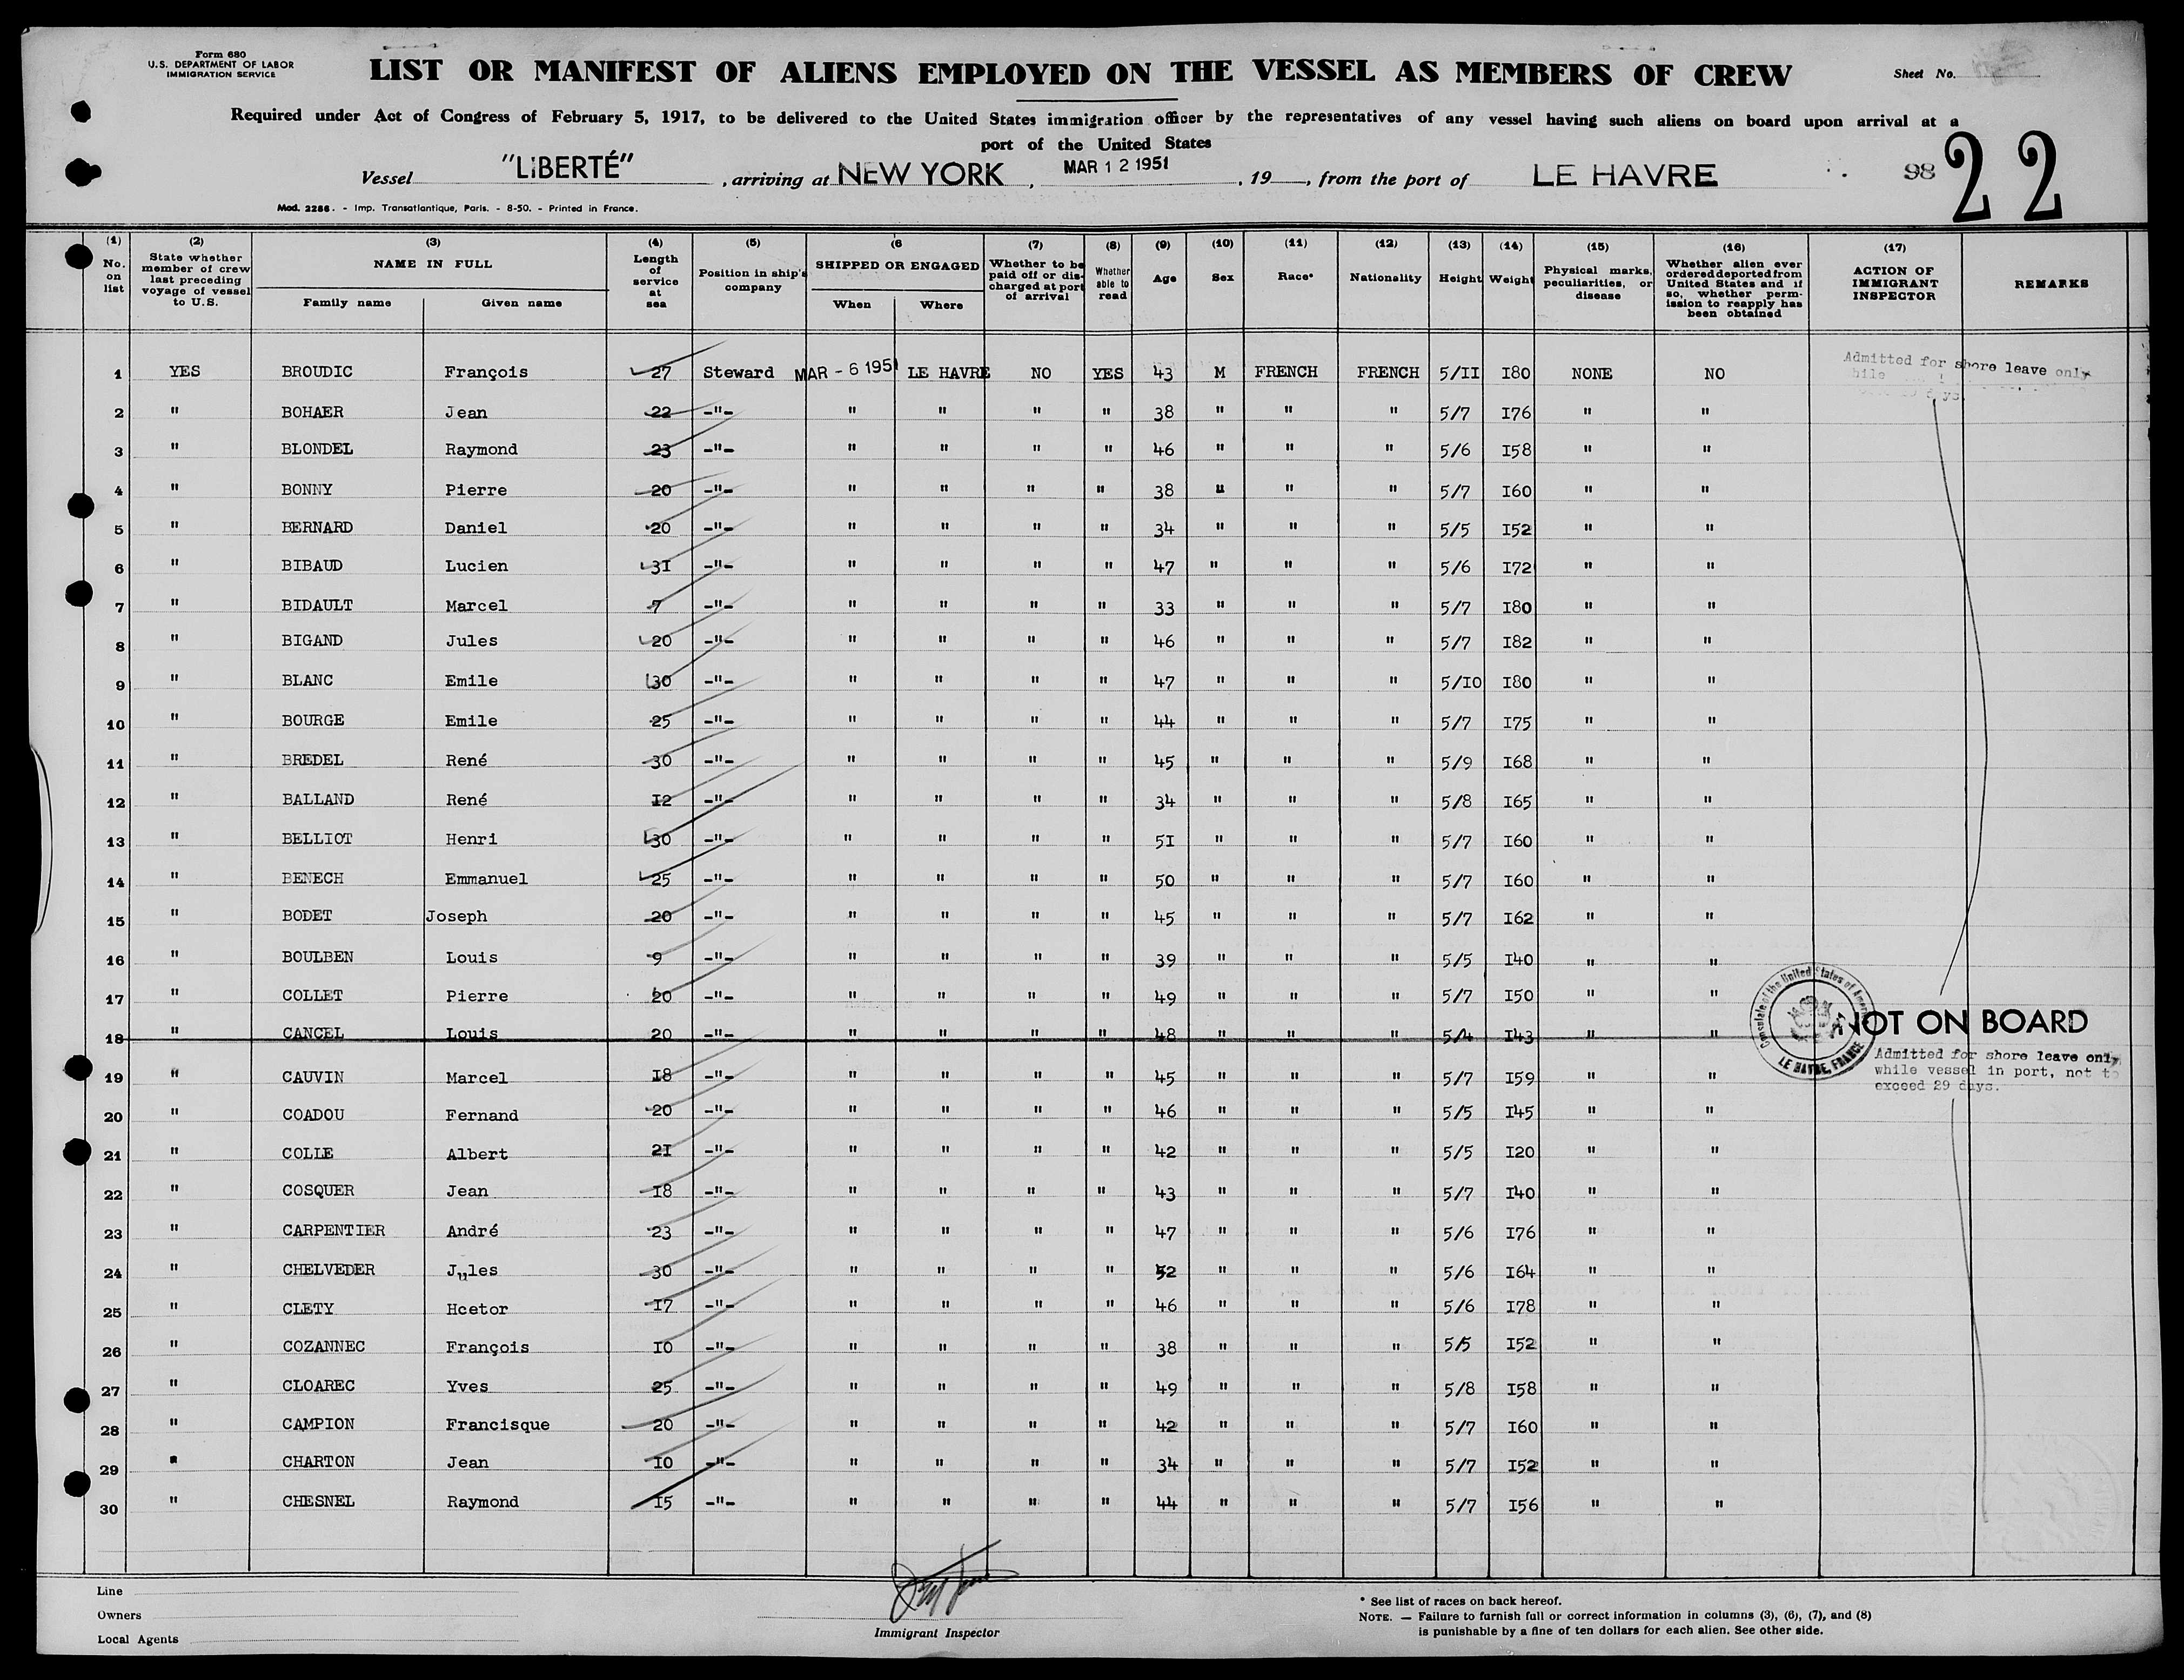 Form 680
U.S. DEPARTMENT OF LABOR
IMMIGRATION SERVICE
LIST OR MANIFEST OF ALIENS EMPLOYED ON THE VESSEL AS MEMBERS OF CREW
Sheet No.
Required under Act of Congress of February 5, 1917, to be delivered to the United States immigration officer by the representatives of any vessel having such aliens on board upon arrival at a
port of the United States
Vessel "LIBERTÉ", arriving at NEW YORK, MAR 12 1951, 19, from the port of LE HAVRE 98 22
Mod. 2286. - Imp. Transatlantique, Paris. - 8-50. - Printed in France.
(1) No. on list
(2) State whether member of crew last preceding voyage of vessel to U.S.
(3) NAME IN FULL
Family name Given name
(4) Length of service at sea
(5) Position in ship's company
(6 SHIPPED OR ENGAGED
When Where
(7) Whether to be paid off or discharged at port of arrival
(8) Whether able to read
(9) Age
(10) Sex
(11) Race*
(12) Nationality
(13) Height
(14) Weight
(15) Physical marks, peculiarities, or disease
(16) Whether alien ever ordered deported from United States and if so, whether permission to reapply has been obtained
(17) ACTION OF IMMIGRANT INSPECTOR
REMARKS
1 YES BROUDIC François 27 Steward MAR - 6 1951 LE HAVRE NO YES 43 M FRENCH FRENCH 5/II I80 NONE NO Admitted for shore leave only
2 " BOHAER Jean 22 -"- " " " " 38 " " " 5/7 I76 " "
3 " BLONDEL Raymond 23 -"- " " " " 46 " " " 5/6 I58 " "
4 " BONNY Pierre 20 -"- " " " " 38 " " " 5/7 I60 " "
5 " BERNARD Daniel 20 -"- " " " " 34 " " " 5/5 I52 " "
6 " BIBAUD Lucien 3I -"- " " " " 47 " " " 5/6 I72 " "
7 " BIDAULT Marcel 7 -"- " " " " 33 " " " 5/7 I80 " "
8 " BIGAND Jules 20 -"- " " " " 46 " " " 5/7 I82 " "
9 " BLANC Emile 30 -"- " " " " 47 " " " 5/IO I80 " "
10 " BOURGE Emile 25 -"- " " " " 44 " " " 5/7 I75 " "
11 " BREDEL René 30 -"- " " " " 45 " " " 5/9 I68 " "
12 " BALLAND René I2 -"- " " " " 34 " " " 5/8 I65 " "
13 " BELLIOT Henri 30 -"- " " " " 5I " " " 5/7 I60 " "
14 " BENECH Emmanuel 25 -"- " " " " 50 " " " 5/7 I60 " "
15 " BODET Joseph 20 -"- " " " " 45 " " " 5/7 I62 " "
16 " BOULBEN Louis 9 -"- " " " " 39 " " " 5/5 I40 " "
17 " COLLET Pierre 20 -"- " " " " 49 " " " 5/7 I50 " "
18 " CANCEL Louis 20 -"- " " " " 48 " " " 5/4 I43 " " NOT ON BOARD
Consulate of the United States of America LE HAVRE, FRANCE
Admitted for shore leave only
while vessel in port, not to
exceed 29 days.
19 " CAUVIN Marcel I8 -"- " " " " 45 " " " 5/7 I59 " "
20 " COADOU Fernand 20 -"- " " " " 46 " " " 5/5 I45 " "
21 " COLLE Albert 2I -"- " " " " 42 " " " 5/5 I20 " "
22 " COSQUER Jean I8 -"- " " " " 43 " " " 5/7 I40 " "
23 " CARPENTIER André 23 -"- " " " " 47 " " " 5/6 I76 " "
24 " CHELVEDER Jules 30 -"- " " " " 52 " " " 5/6 I64 " "
25 " CLETY Hcetor I7 -"- " " " " 46 " " " 5/6 I78 " "
26 " COZANNEC François IO -"- " " " " 38 " " " 5/5 I52 " "
27 " CLOAREC Yves 25 -"- " " " " 49 " " " 5/8 I58 " "
28 " CAMPION Francisque 20 -"- " " " " 42 " " " 5/7 I60 " "
29 " CHARTON Jean IO -"- " " " " 34 " " " 5/7 I52 " "
30 " CHESNEL Raymond I5 -"- " " " " 44 " " " 5/7 I56 " "
Line
Owners
Local Agents
Immigrant Inspector
* See list of races on back hereof.
NOTE. — Failure to furnish full or correct information in columns (3), (6), (7), and (8)
is punishable by a fine of ten dollars for each alien. See other side.